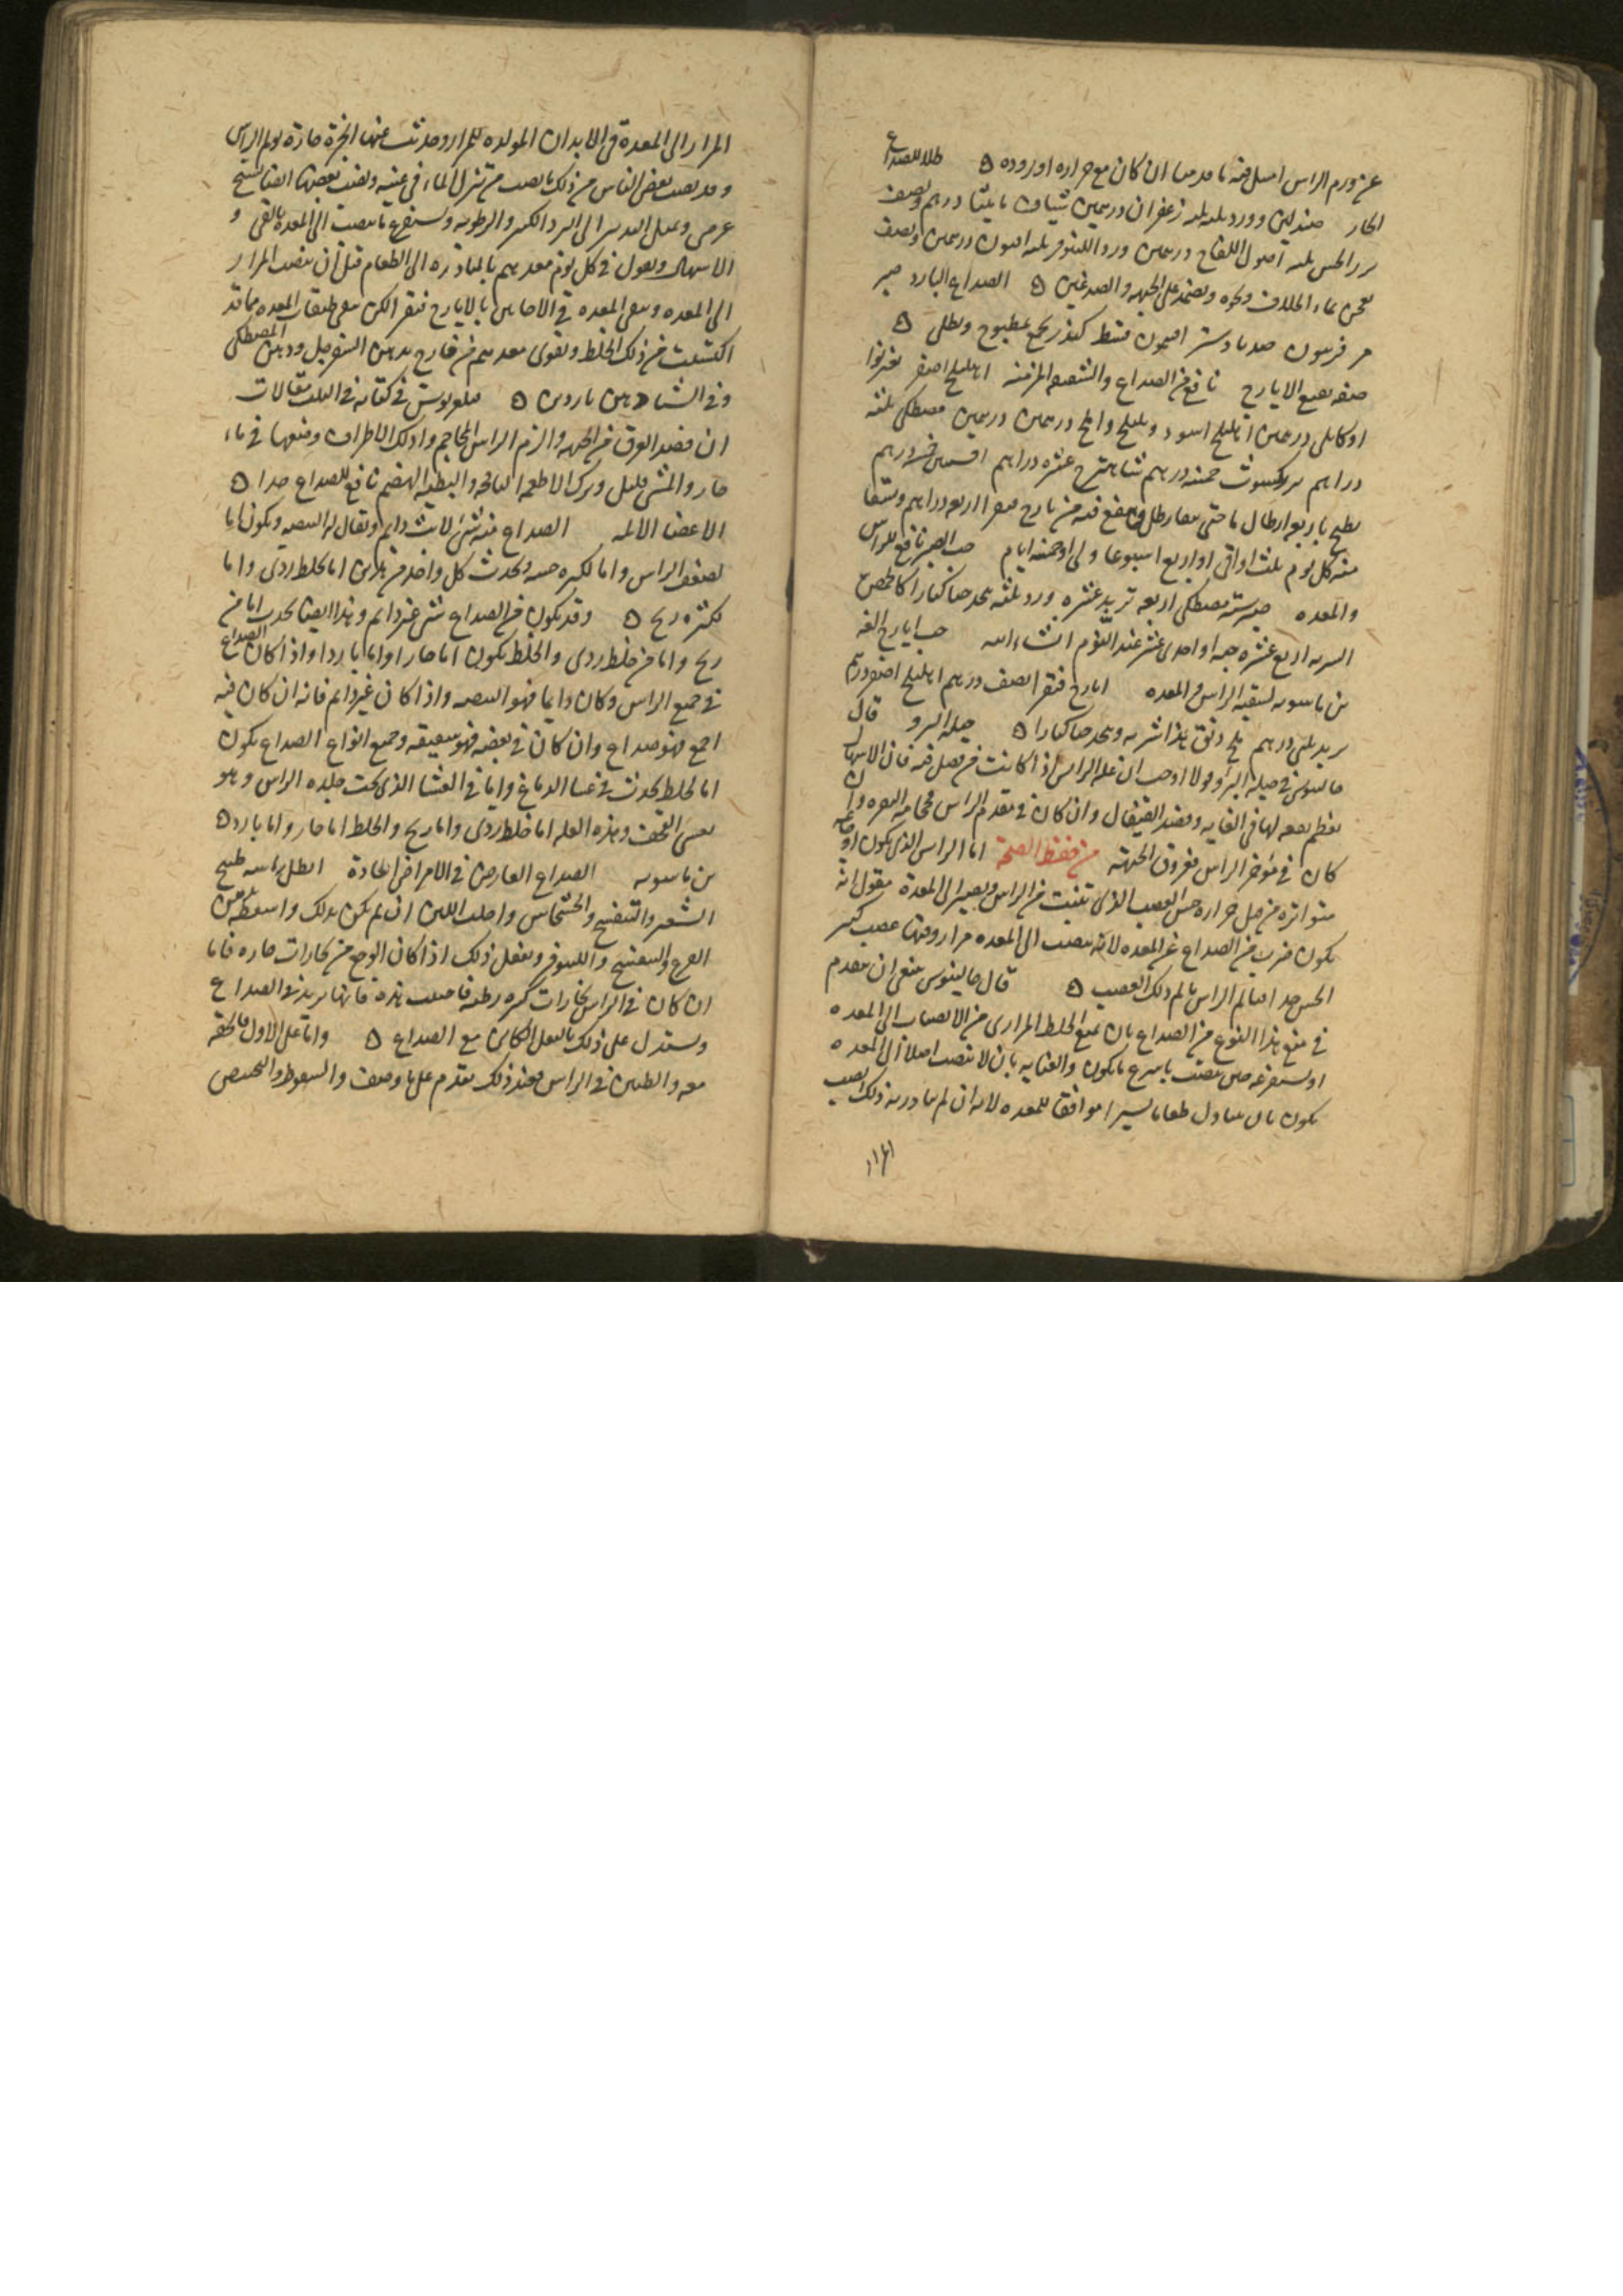 عن ورم الراس اسهل فيه ما قدمنا ان كان مع حراره او بروده ه طلا للصداع
الحار صندلين وورد ثلثه ثلثه زعفران درهمين شياف ماميثا درهم ونصف
بزر الخس ثلثه اصول اللفاح درهمين ورد اللينوفر ثلثه افيون درهمين ونصف
يعجن بماء الخلاف ونحوه ويضمد على الجبهه والصدغين ه الصداع البارد صبر
مر فربيون جندبادستر افيون قسط كندر يجمع بمطبوخ ويطلى ه
صفه نقيع الايارج نافع من الصداع والشقيقه المزمنه اهليلج اصفر
او كابلى درهمين اهليلج اسود وبليلج واملج درهمين درهمين مصطكى ثلثه
دراهم بزر كشوث خمسه دراهم شاهترج عشره دراهم افسنتين خمسه دراهم
يطبخ باربعه ارطال ما حتى يصير رطل وينقع فيه من يارج فيقرا اربعه دراهم ويسقا
منه كل يوم ثلث اواقى او اربع اسبوعا والى او خمسه ايام حب الصبر نافع للراس
والمعده صبر سته مصطكى اربعه تربد عشره ورد ثلثه يتخذ حبا كبارا كالحمص
الشربه اربع عشره حبه او احدى عشر عند النوم انشاءالله حب ايارج الفه
بن ماسويه لتنقيه الراس والمعده ايارج فيقرا نصف درهم اهليلج اصفر درهم
تربد ثلثى درهم ملح دانق هذا شربه ويتخذ حبا كبارا ه حيله البرو قال
جالينوس فى حيله البرو لولا اوجب ان عله الراس اذا كانت من فضل فيه فان الاسهال
يعظم نفعه لها فى الغايه وفصد القيفال وان كان فى مقدم الراس فحجامه النقره وان
كان فى مؤخر الراس فعروق الجبهه من حفظ الصحة اما الراس الذى يكون اوجاعه
متواتره من قبل حراره حس العصب الذى تنبت من الراس ويصير الى المعدة فيقول انه
يكون ضرب من الصداع عن المعده لانه ينصب الى المعده مرار وفيها عصب كثير
الحس جدا فيالم الراس بالم ذلك العصب ه قال جالينوس ينبغى ان يتقدم
فى منع هذا النوع من الصداع بان يمنع الخلط المرارى من الانصباب الى المعده
او يستفرغه حين ينصب باسرع ما يكون والعنايه بان لا ينصب اصلا الى المعده
يكون بان يتناول طعاما يسيرا موافقا للمعده لانه ان لم يبادر به ذلك انصب
المرار
المرار الى المعدة فى الابدان المولده للمرار وحدثت عنها ابخرة حارة تولم الراس
وقد يصيب بعض الناس من ذلك ما يصيب من نزل الماء فى عينه ويصيب بعضها ايضا تشنج
عرضى ويميل التدبير الى البرد الكثير والرطوبه ويستفرغ ما ينصب الى المعده بالقى و
الاسهال ويعول فى كل يوم معدهم بالمبادره الى الطعام قبل ان ينصب المرار
الى المعده وينقى المعده فى الاحايين بالايارج فيقرا لكى ينقى طبقات المعده مما قد
اكتسبت من ذلك الخلط وتقوى معدهم من خارج بدهن السفرجل ودهن المصطكى
وفى الشتا دهن ناردين ه فيلغريوس فى كتابه فى الثلث مقالات
ان فصد العرق من الجبهه والزم الراس المحاجم وادلك الاطراف وضعها فى ماء
حار والمشى قليل وترك الاطعمه النافخه والبطيه الهضم نافع للصداع جدا ه
الاعضا الالمه الصداع منه شى لابث دايم ويقال له البيضه ويكون اما
لضعف الراس واما لكثره حسه ويحدث كل واحد من هذين اما بخلط ردى واما
بكثره ريح ه وقد يكون من الصداع شى غير دايم وهذا ايضا يحدث اما من
ريح واما من خلط ردى والخلط يكون اما حارا واما باردا واذا كان الصداع
فى جميع الراس وكان دايما فهو البيضه واذا كان غير دايم فانه ان كان فيه
اجمع فهو صداع وان كان فى بعضه فهو شقيقه وجميع انواع الصداع يكون
اما لخلط يحدث فى غشا الدماغ واما فى الغشا الذى تحت جلده الراس وهو
يغشى القحف وهذه العله اما خلط ردى واما ريح والخلط اما حار واما بارد ه
بن ماسويه الصداع العارض فى الامراض الحادة انطل راسه طبيخ
الشعير والبنفسج والخشخاش واحلب اللبن ان لم يكن بذلك واسعطه بدهن
القرع والبنفسج واللينوفر ويفعل ذلك اذا كان الوجع من بخارات حاره فاما
ان كان فى الراس بخارات كثيره رطبه فاجتنب هذه فانها يزيد فى الصداع
ويستدل على ذلك بالثقل الكاين مع الصداع ه واما على الاول فالخفه
معه والطنين فى الراس فعند ذلك تقدم على ما وصف والسعوط والتحميص